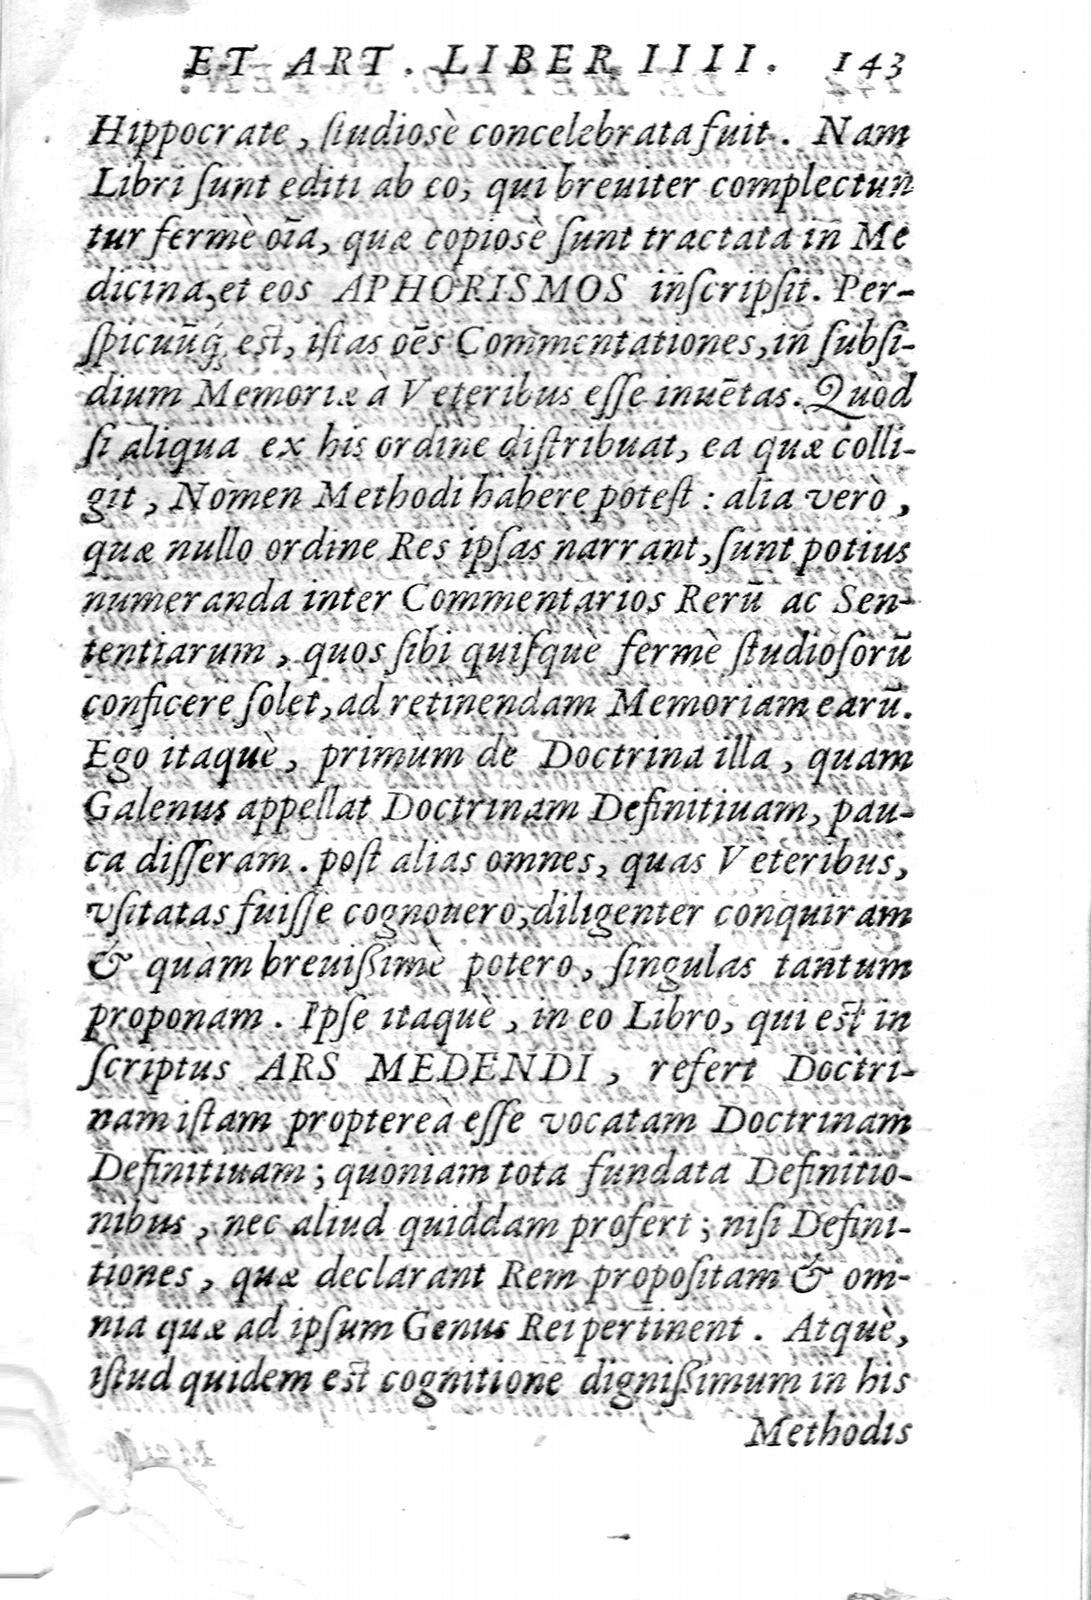 ET ART. LIBER IIII. 143
Hippocrate, ſtudiosè concelebrata fuit. Nam
Libri ſunt editi ab eo, qui breuiter complectun
tur fermè oīa, quæ copiosè ſunt tractata in Me
dicina, et eos APHORISMOS inſcripſit. Per-
ſpicuūq́; est, iſtas oēs Commentationes, in ſubſi-
dium Memoriæ à Veteribus eſſe inuētas. Quòd
ſi aliqua ex his ordine diſtribuat, ea quæ colli-
git, Nomen Methodi habere poteſt: alia verò,
quæ nullo ordine Res ipſas narrant, ſunt potius
numeranda inter Commentarios Rerū ac Sen-
tentiarum, quos ſibi quiſquè fermè ſtudioſorū
conficere ſolet, ad retinendam Memoriam earū.
Ego itaquè, primùm de Doctrina illa, quam
Galenus appellat Doctrinam Definitiuam, pau-
ca diſſeram. poſt alias omnes, quas Veteribus,
vſitatas fuiſſe cognouero, diligenter conquiram
& quàm breuiſſimè potero, ſingulas tantum
proponam. Ipſe itaquè, in eo Libro, qui est in
ſcriptus ARS MEDENDI, refert Doctri-
nam iſtam proptereà eſſe vocatam Doctrinam
Definitiuam; quoniam tota fundata Definitio-
nibus, nec aliud quiddam profert; niſi Defini-
tiones, quæ declarant Rem propoſitam & om-
nia quæ ad ipſum Genus Rei pertinent. Atquè,
iſtud quidem est cognitione digniſſimum in his
Methodis